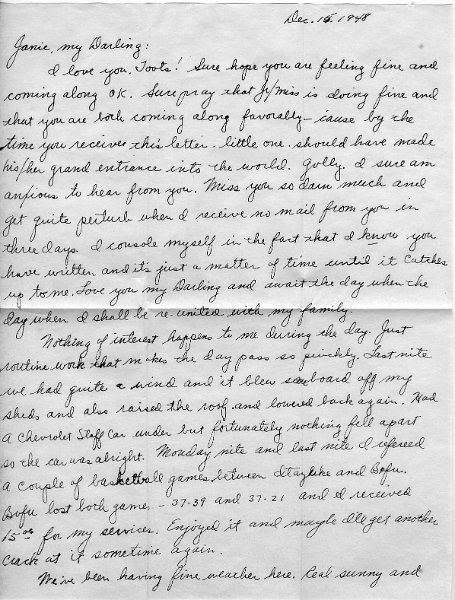 Dec. 15, 1948
Janie, my Darling:
I love you, Toots! Sure hope you are feeling fine and
coming along OK. Sure pray that Jr/miss is doing fine and
that you are both coming along favorably - cause by the
time you receive this letter. little one. should have made
his/her grand entrance into the world. Golly. I sure am
anxious to hear from you. Miss you so darn much and
get quite perturb when I receive no mail from you in
three days. I console myself in the fact that I know you
have written and it's just a matter of time until it catches
up to me. Love you my Darling and await the day when the
day when I shall be re-united with my family.
Nothing of interest happens to me during the day. Just
routine work that makes the day pass so quickly. Last nite
we had quite a wind and it blew board off my
sheds, and also raised the roof and lowered back again. Had
a Chevrolet Staff Car under but fortunately nothing fell apart
so the car was alright. Monday nite and last nite I refereed
a couple of basketball games between and Bofu.
Bofu lost both games - 37-39 and 37-21 and I received
15.00 for my services. Enjoyed it and maybe I'll get another
crack at it sometime again.
We've been having fine weather here. Real sunny and